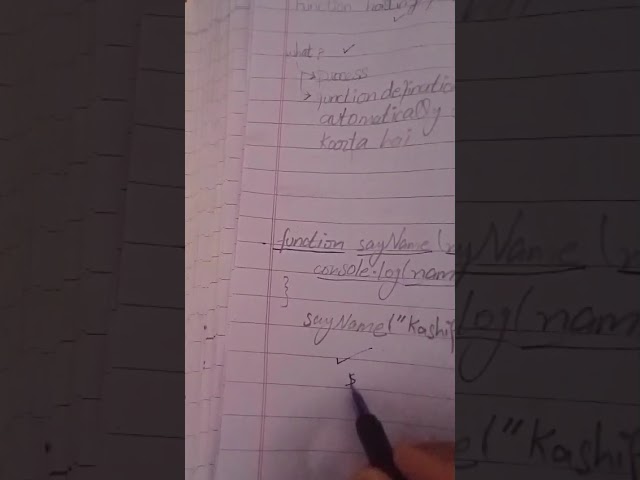 function
what?
process
function defination
automatically
karta hai
function sayName(
console.log(nam
}
sayName("Kashif